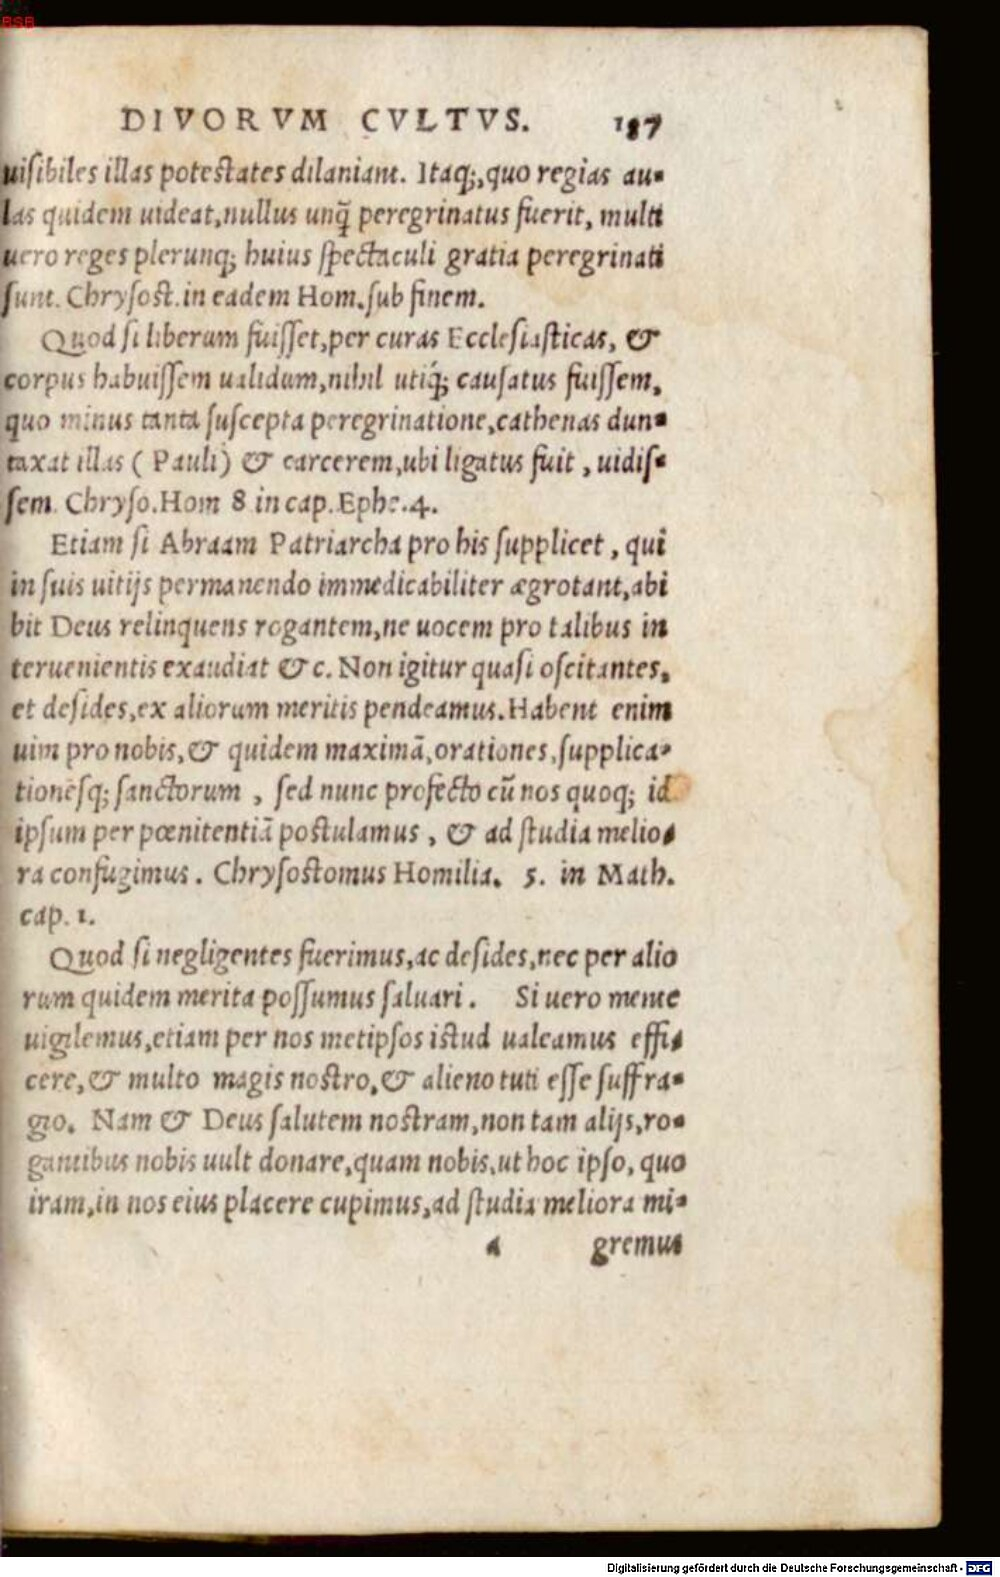 BSB
DIVORVM CVLTVS. 187
uisibiles illas potestates dilaniant. Itaq;, quo regias au-
las quidem uideat, nullus unq̃ peregrinatus fuerit, multi
uero reges plerunq; huius spectaculi gratia peregrinati
sunt. Chrysost. in eadem Hom. sub finem.
Quod si liberum fuisset, per curas Ecclesiasticas, &
corpus habuissem ualidum, nihil utiq́; causatus fuissem,
quo minus tanta suscepta peregrinatione, cathenas dun-
taxat illas ( Pauli ) & carcerem, ubi ligatus fuit, uidis-
sem. Chryso. Hom 8 in cap. Ephe. 4.
Etiam si Abraam Patriarcha pro his supplicet, qui
in suis uitijs permanendo immedicabiliter ægrotant, abi
bit Deus relinquens rogantem, ne uocem pro talibus in
teruenientis exaudiat &c. Non igitur quasi oscitantes,
et desides, ex aliorum meritis pendeamus. Habent enim
uim pro nobis, & quidem maximã, orationes, supplica-
tionesq; sanctorum, sed nunc profecto cũ nos quoq; id
ipsum per pœnitentiã postulamus, & ad studia melio-
ra confugimus. Chrysostomus Homilia. 5. in Math.
cap. 1.
Quod si negligentes fuerimus, ac desides, nec per alio
rum quidem merita possumus saluari. Si uero mente
uigilemus, etiam per nos metipsos istud ualeamus effi-
cere, & multo magis nostro, & alieno tuti esse suffra-
gio. Nam & Deus salutem nostram, non tam alijs, ro-
gantibus nobis uult donare, quam nobis, ut hoc ipso, quo
iram, in nos eius placere cupimus, ad studia meliora mi-
a gremus
Digitalisierung gefördert durch die Deutsche Forschungsgemeinschaft - DFG